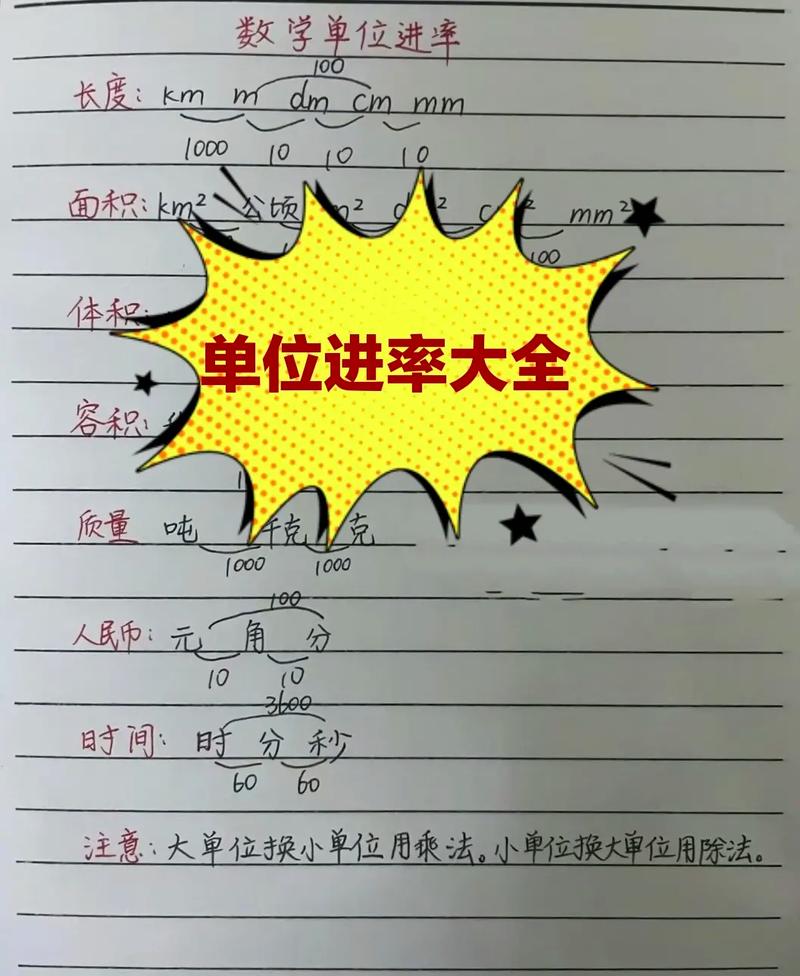 数学单位进率
100
长度: km m dm cm mm
1000 10 10 10
面积: km² 公顷 mm²
100
体积:
单位进率大全
容积:
质量 吨 千克 克
1000 1000
100
人民币: 元 角 分
10 10
3600
时间: 时 分 秒
60 60
注意: 大单位换小单位用乘法。小单位换大单位用除法。